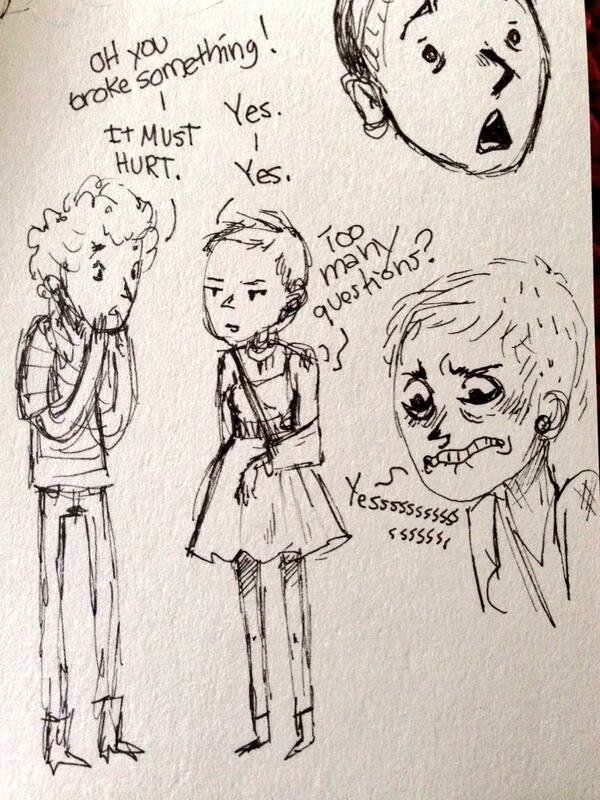 OH YOU
broke something!
IT MUST
HURT.
Yes.
Yes.
Too
many
questions?
Yesssssssssss
ssssss,